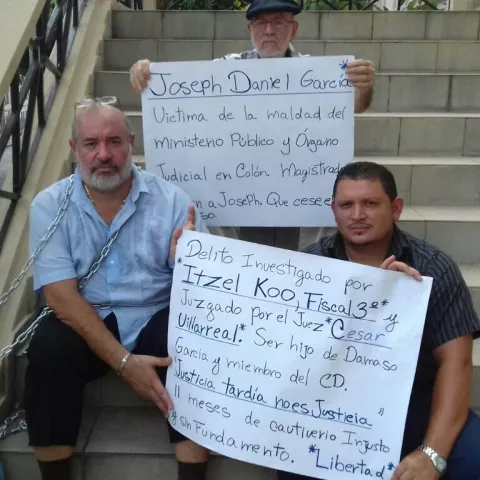 Joseph Daniel García*
Victima de la maldad del
Ministerio Público y Órgano
Judicial en Colón. Magistrad
a Joseph. Que cese e
so.
Delito Investigado por
*Itzel Koo, Fiscal 3ª* y
Juzgado por el Juez *Cesar
Villarreal.* Ser hijo de Damaso
García y miembro del CD.
"Justicia tardía no es Justicia"
11 meses de cautiverio Injusto
y sin Fundamento. *Libertad*